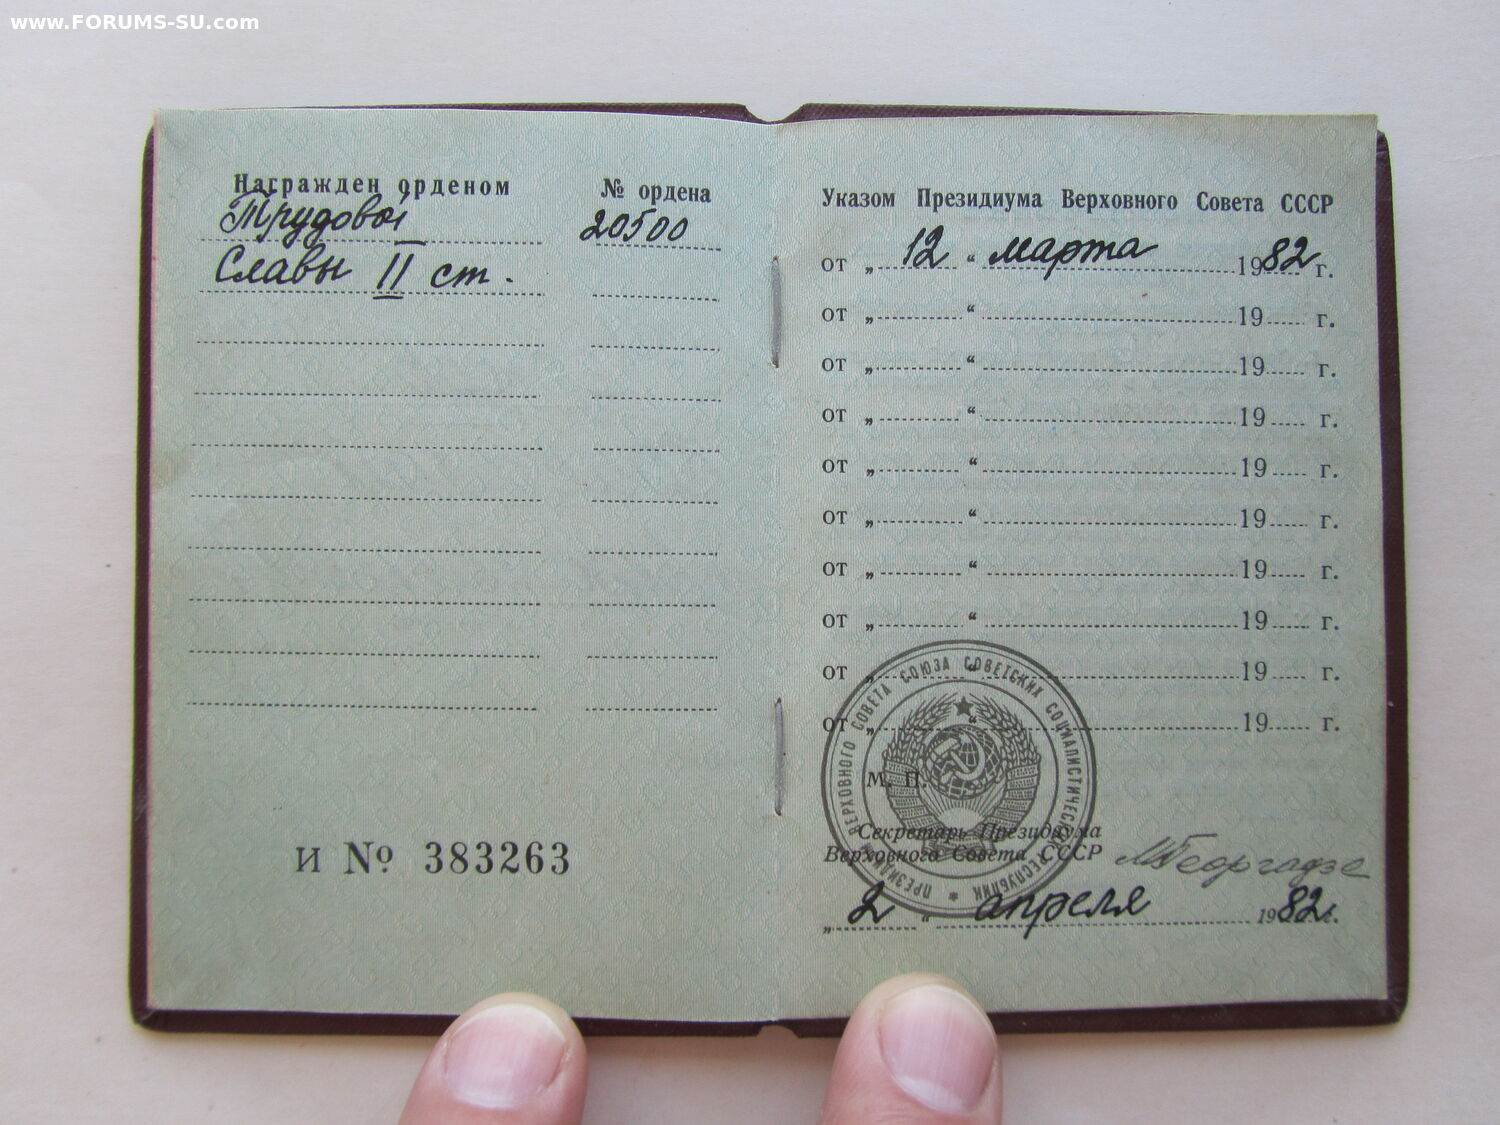 www.FORUMS-SU.com
Награжден орденом № ордена
Трудовой 20500
Славы II ст.
И № 383263
Указом Президиума Верховного Совета СССР
от „ 12 “ марта 1982 г.
от „ “ 19 г.
от „ “ 19 г.
от „ “ 19 г.
от „ “ 19 г.
от „ “ 19 г.
от „ “ 19 г.
от „ “ 19 г.
от „ “ 19 г.
от „ “ 19 г.
ПРЕЗИДИУМ ВЕРХОВНОГО СОВЕТА СОЮЗА СОВЕТСКИХ СОЦИАЛИСТИЧЕСКИХ РЕСПУБЛИК *
М. П.
Секретарь Президиума
Верховного Совета СССР МГеоргадзе
„ 2 “ апреля 1982 г.